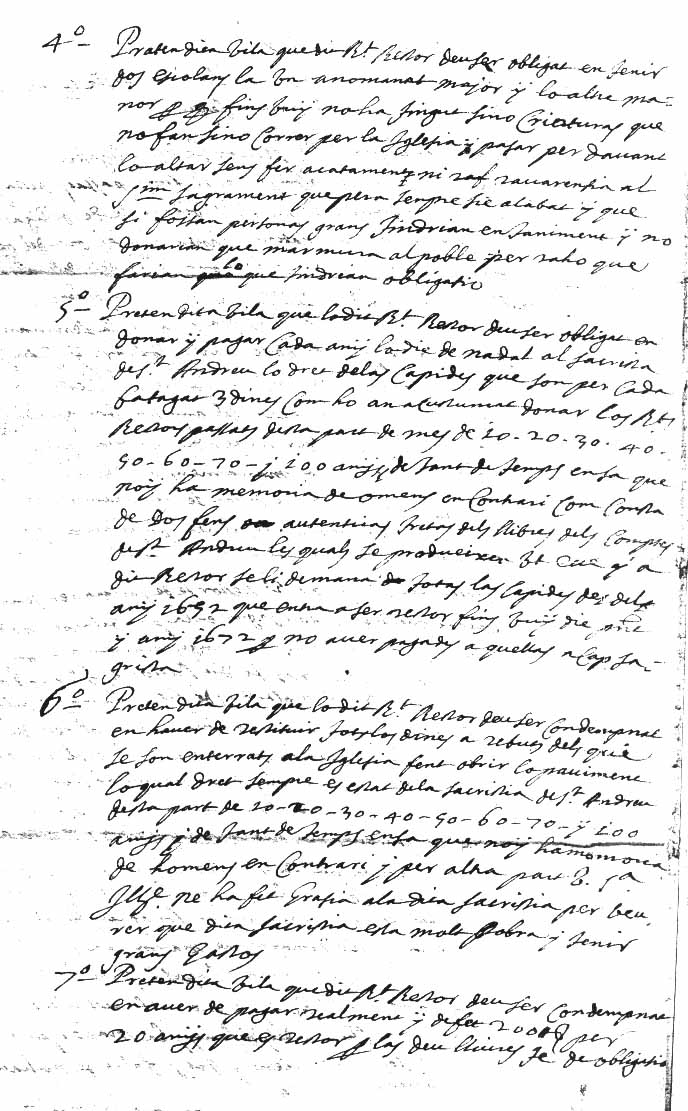 4º Praten dita vila que dit Rt. Rector deu ser obligat en tenir
dos escolans la un anomanat major y lo altre ma-
nor fins vuy no ha tingut sino Criaturas que
no fan sino Correr per la Iglesia y pasar per davant
lo altar sens fer acatament ni raf ravarentia al
Sim sagrament que pera sempre sie alabat y que
si fossan personas grans tindrian en taniment y no
donarian que marmura al poble per raho que
farian lo que tindrian obligatio
5º Preten dita vila que lo dit Rt. Rector deu ser obligat en
donar y pagar Cada any lo die de nadal al sacrista
de St. Andreu lo dret de las Capides que son per Cada
batagat 3 dines Com ho an acustumat donar los Rts
Rectors passats desta part de mes de 10-20-30-40-
50-60-70-y 100 anys y de tant de temps en sa que
noy ha memoria de omens en Contrari Com Consta
de dos fens autenticas tretas dels llibres dels Comptes
de St. Andreu les quals se produeixen Vt Ecce y a
dit Rector se li demana totas las Capides des del
any 1652 que entra a ser rector fins vuy die prnt
y any 1672 p no aver pagades aquellas a Cap sa-
grista
6º Preten dita vila que lo dit Rt. Rector deu ser Condempnat
en haver de restituir tots los dines a rebuts dels que
se son enterrats a la Iglesia fent obrir lo pauiment
lo qual dret sempre es estat de la sacristia de St. Andreu
desta part de 10-20-30-40-50-60-70-y 100
anys y de tant de temps en sa que noy ha momoria
de homens en Contrari y per altra part V. Sa
Illsa ne ha fet Grasia a la dita sacristia per veu-
rer que dita sacristia esta molt Pobra y tenir
grans Gastos
7º Preten dita vila que dit Rt. Rector deu ser Condempnat
en aver de pagar realment y de fet 200 per
20 anys que es rector p las deu lliures te de obligatio